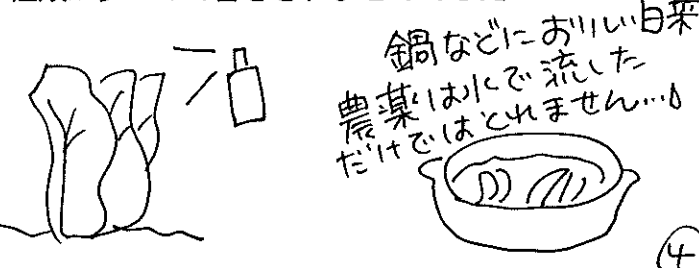 鍋などにおいしい白菜
農薬は水で流した
だけではとれません…♪
④